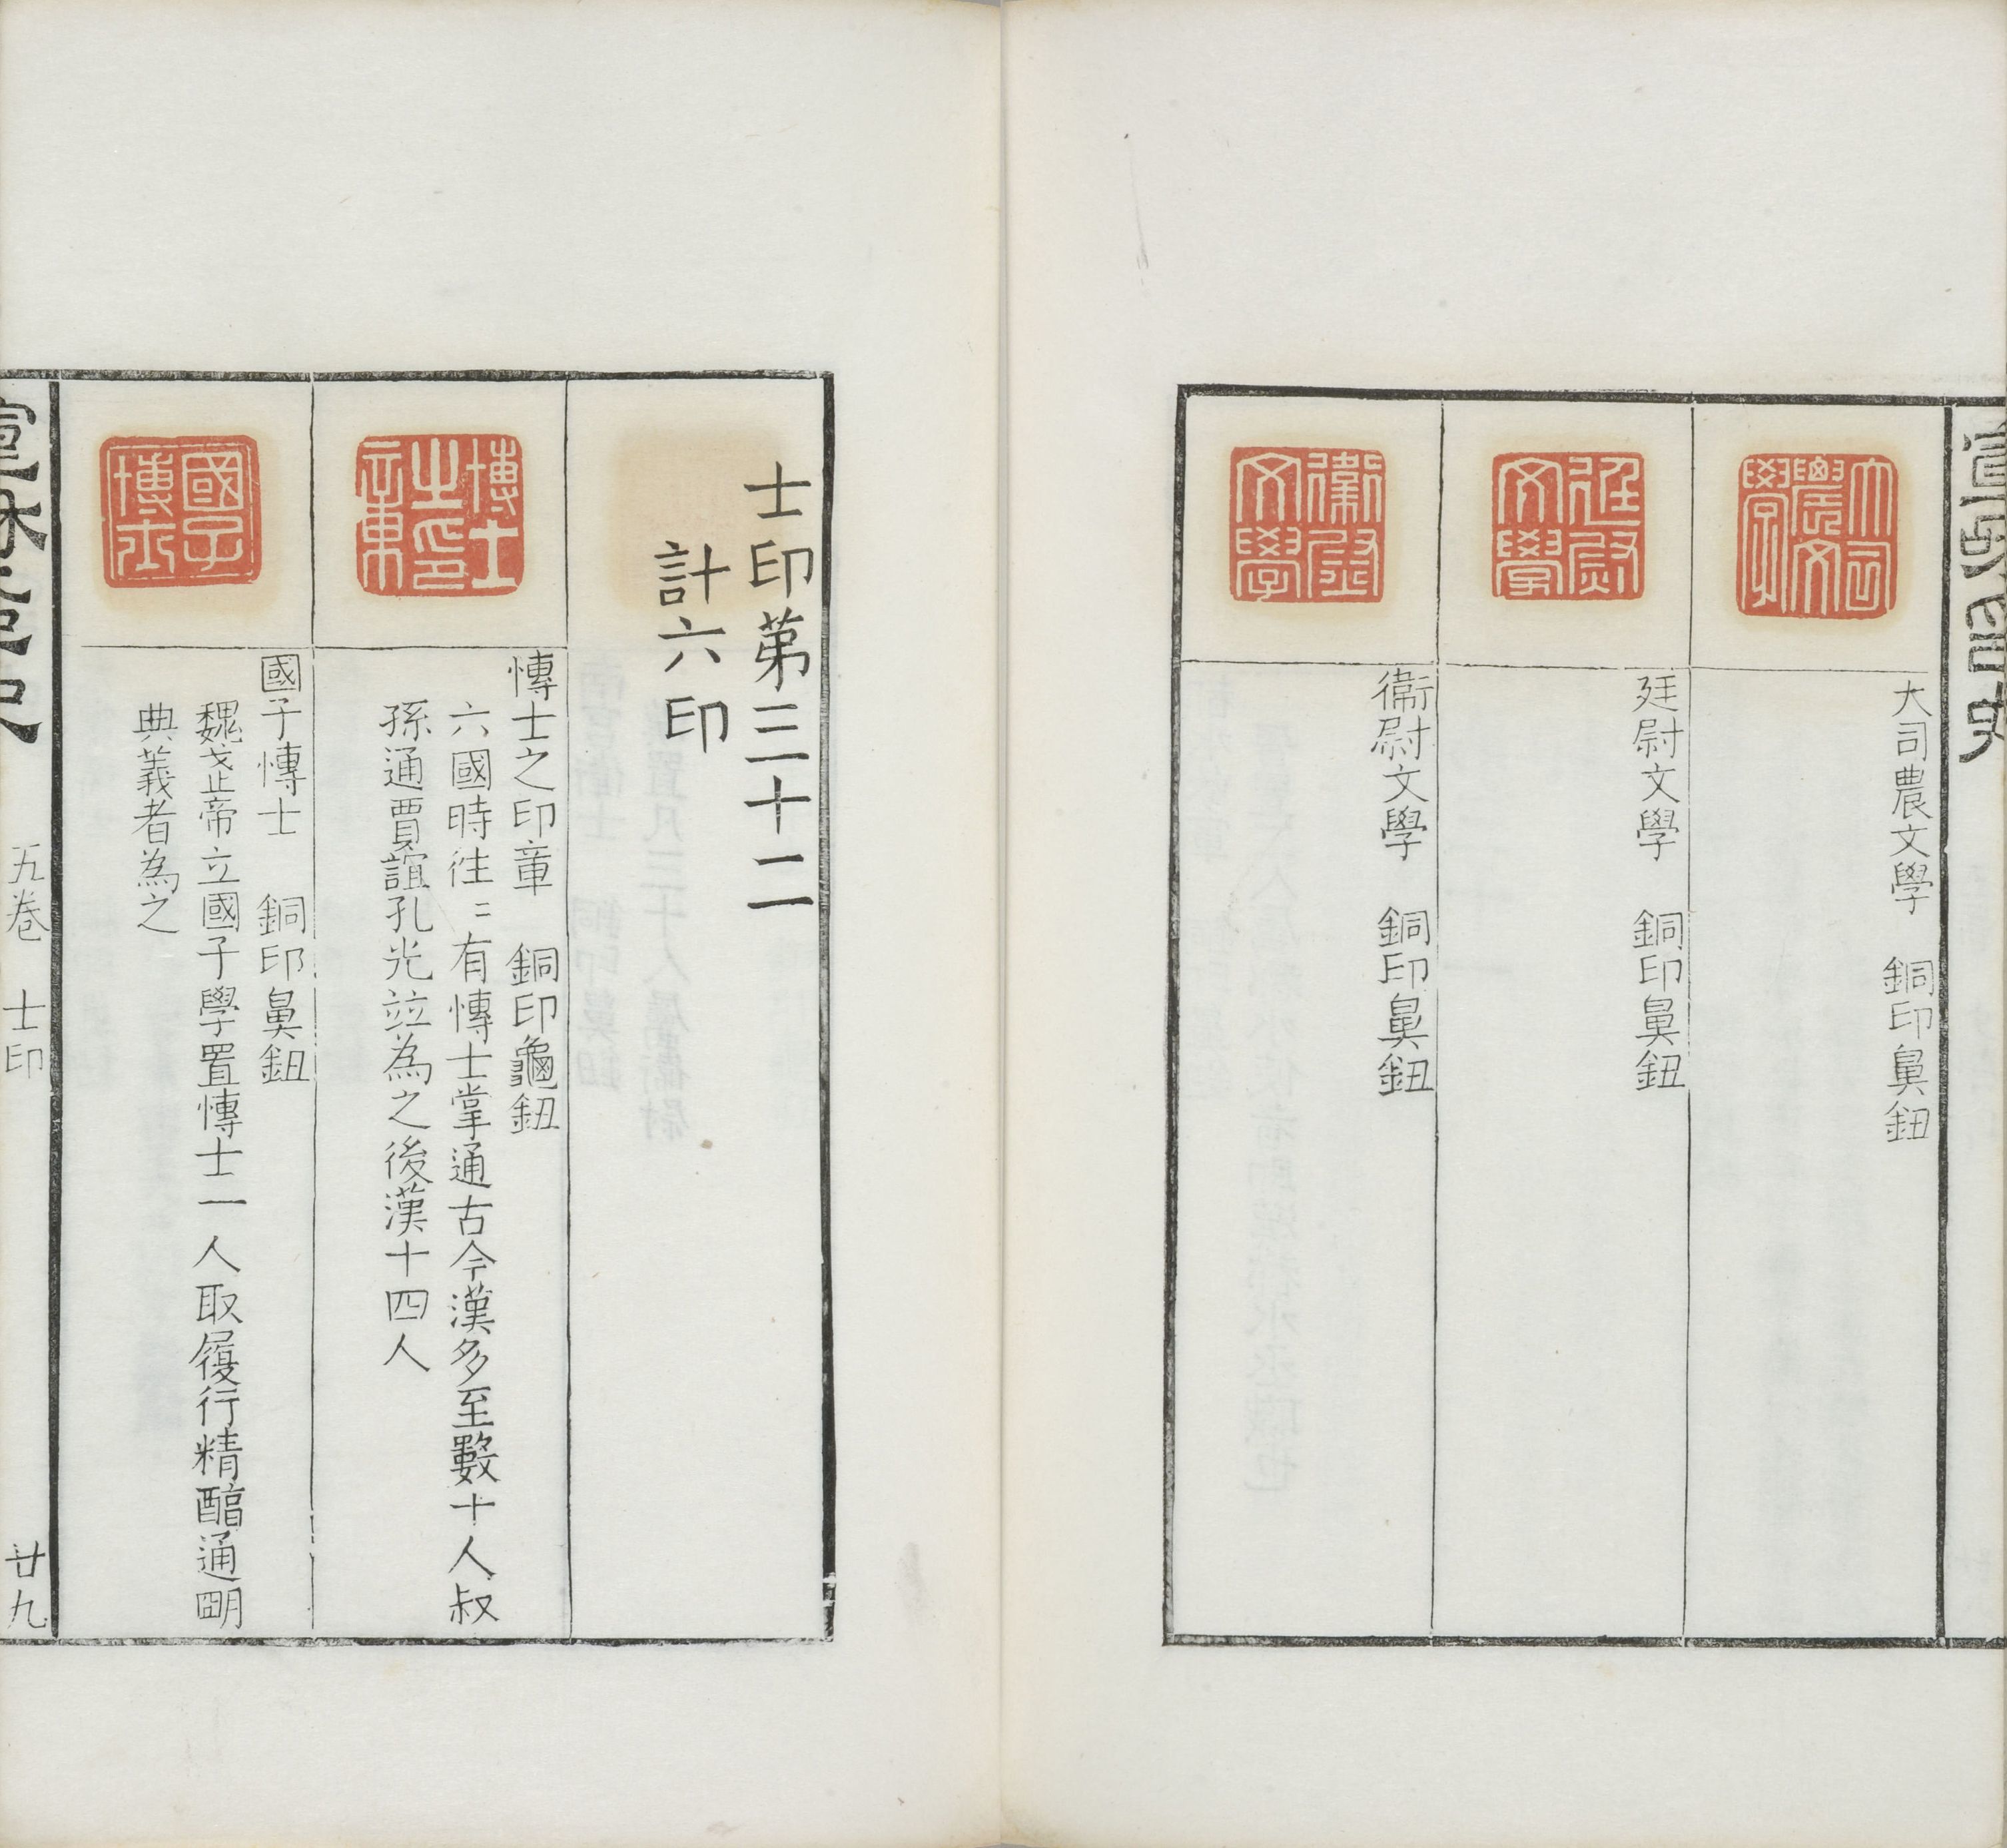 大司農文學
大司農文學 銅印鼻鈕
廷尉文學
廷尉文學 銅印鼻鈕
衞尉文學
衞尉文學 銅印鼻鈕
士印第三十二
計六印
博士之印章
愽士之印章 銅印龜鈕
六國時徃〻有愽士掌通古今漢多至數十人叔
孫通賈誼孔光竝為之後漢十四人
國子博士
國子愽士 銅印鼻鈕
魏武帝立國子學置愽士一人取履行精醕通朙
典義者為之
五卷 士印 廿九